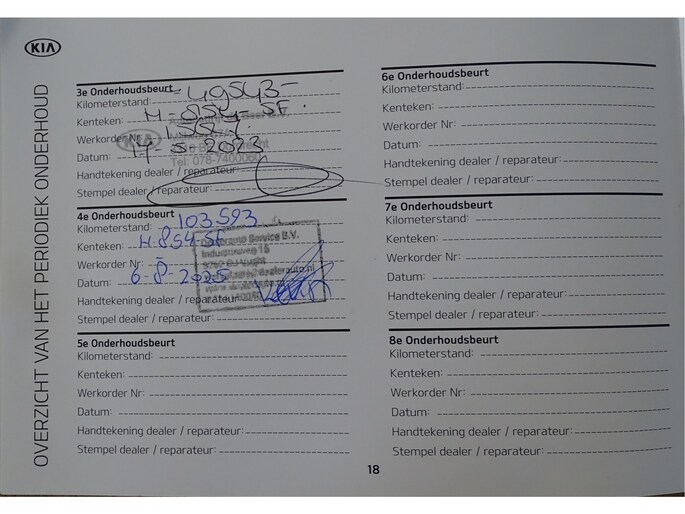 KIA
OVERZICHT VAN HET PERIODIEK ONDERHOUD
3e Onderhoudsbeurt
Kilometerstand: 49543
Kenteken: H-854-SF
Werkorder Nr:
KIA
Datum: 17-5-2023
Tel: 078-7400060
Handtekening dealer / reparateur:
Stempel dealer / reparateur:
4e Onderhoudsbeurt
Kilometerstand: 103593
Kenteken: H-854-SF
Service B.V.
Werkorder Nr:
Datum: 6-8-2025
Handtekening dealer / reparateur:
Stempel dealer / reparateur:
5e Onderhoudsbeurt
Kilometerstand:
Kenteken:
Werkorder Nr:
Datum:
Handtekening dealer / reparateur:
Stempel dealer / reparateur:
6e Onderhoudsbeurt
Kilometerstand:
Kenteken:
Werkorder Nr:
Datum:
Handtekening dealer / reparateur:
Stempel dealer / reparateur:
7e Onderhoudsbeurt
Kilometerstand:
Kenteken:
Werkorder Nr:
Datum:
Handtekening dealer / reparateur:
Stempel dealer / reparateur:
8e Onderhoudsbeurt
Kilometerstand:
Kenteken:
Werkorder Nr:
Datum:
Handtekening dealer / reparateur:
Stempel dealer / reparateur:
18